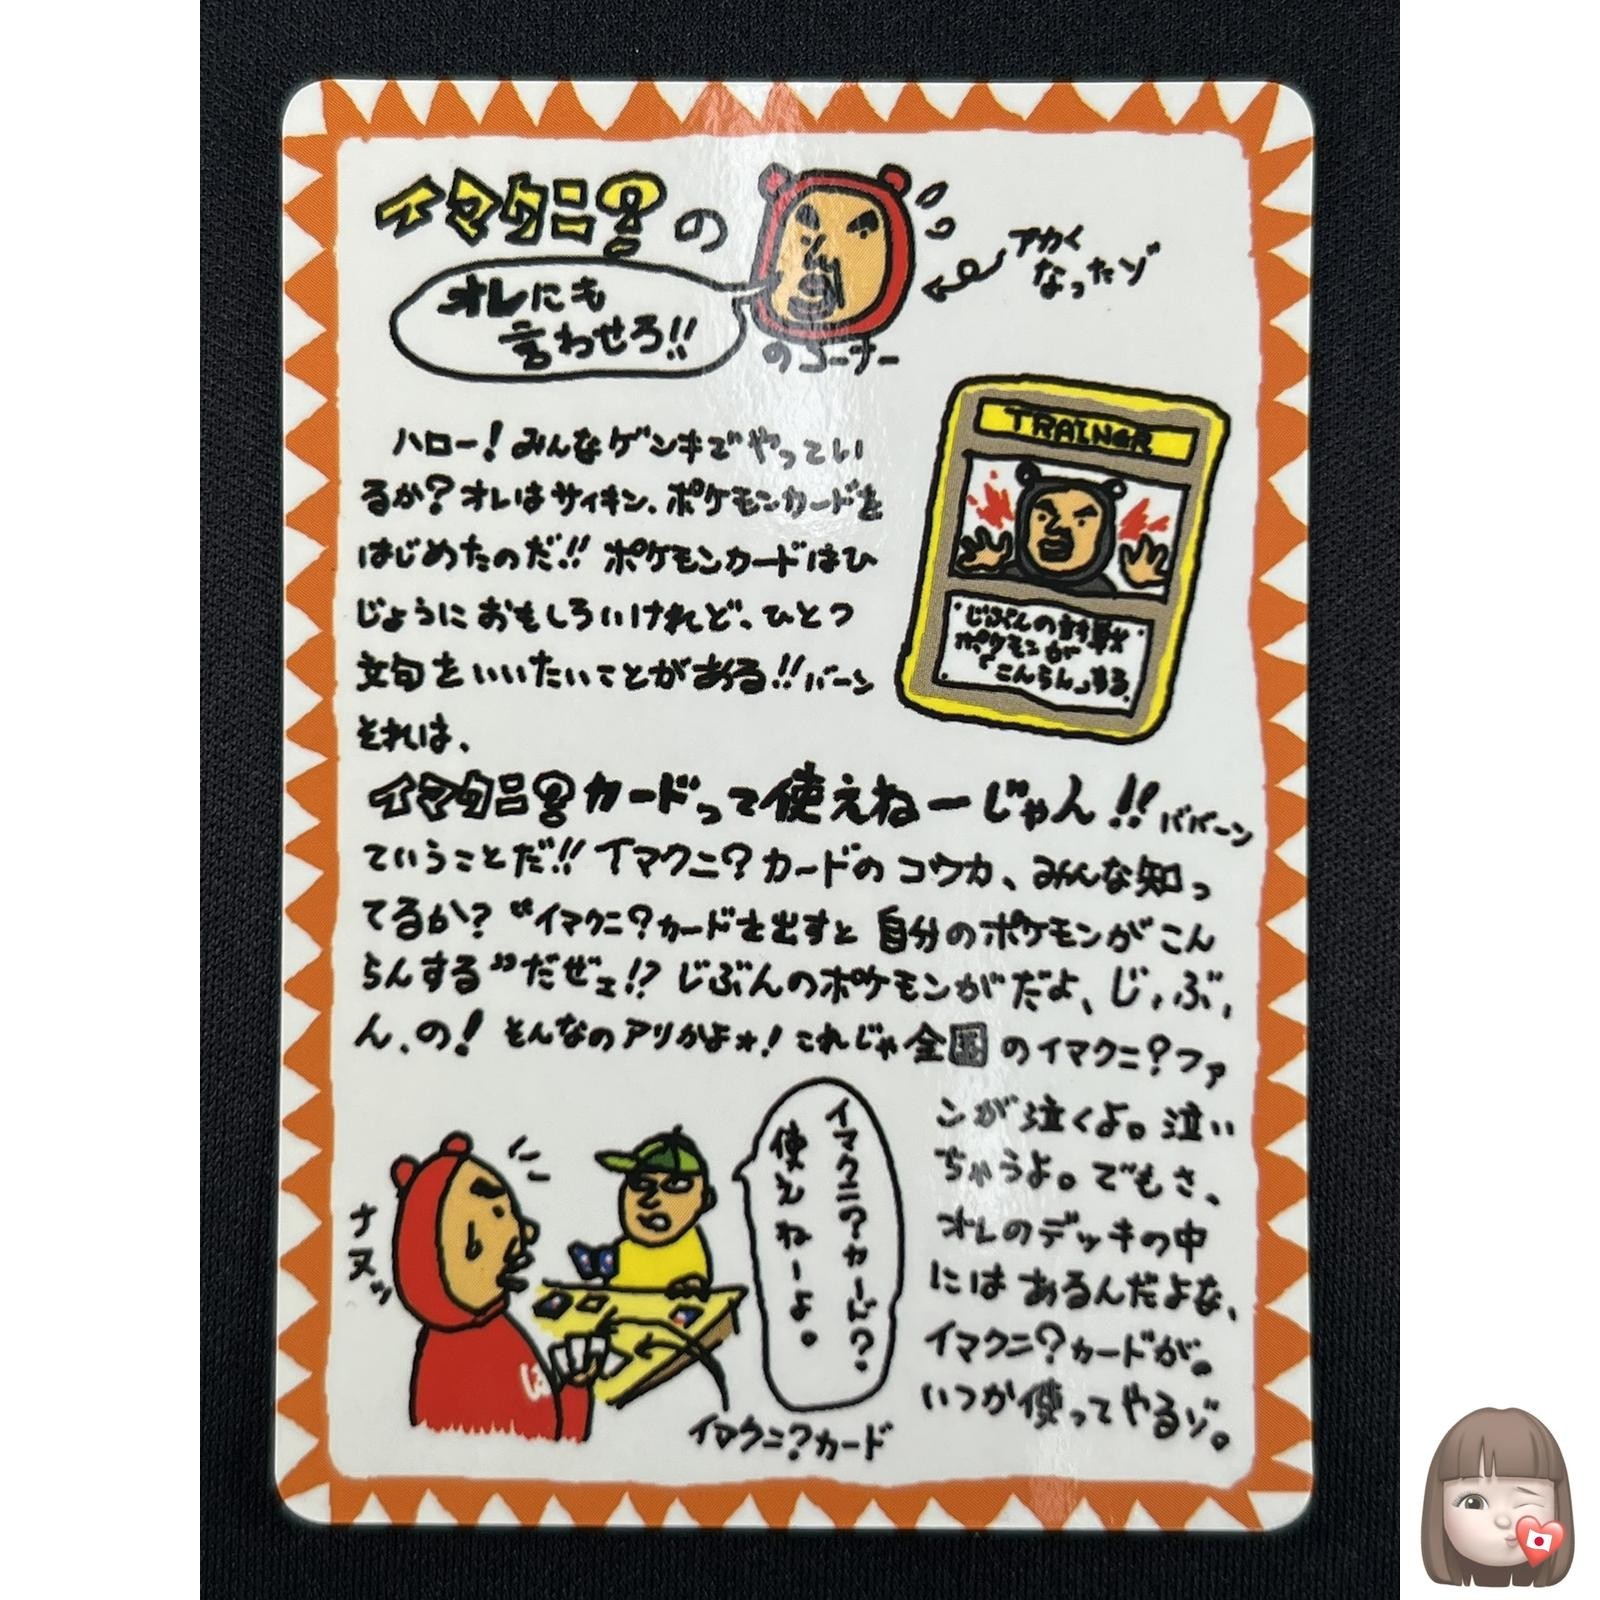 イマクニ?の
オレにも
言わせろ!!
のコーナー
アカく
なったゾ
ハロー!みんなゲンキでやってい
るか?オレはサイキン、ポケモンカードを
はじめたのだ!!ポケモンカードはひ
じょうにおもしろいけれど、ひとつ
文句をいいたいことがある!!バーン
それは、
TRAINER
じぶんの対戦
ポケモンが
「こんらん」する。
イマクニ?カードって使えねーじゃん!!ババーン
ていうことだ!!イマクニ?カードのコウカ、みんな知っ
てるか?“イマクニ?カードを出すと自分のポケモンがこん
らんする”だぜェ!?じぶんのポケモンがだよ、じ,ぶ,
ん、の!そんなのアリかよォ!これじゃ全国のイマクニ?ファ
ンが泣くよ。泣い
ちゃうよ。でもさ、
オレのデッキの中
にはあるんだよな、
イマクニ?カードが。
いつか使ってやるゾ。
イマクニ?カード?
使えねーよ。
ナヌッ
イマクニ?カード